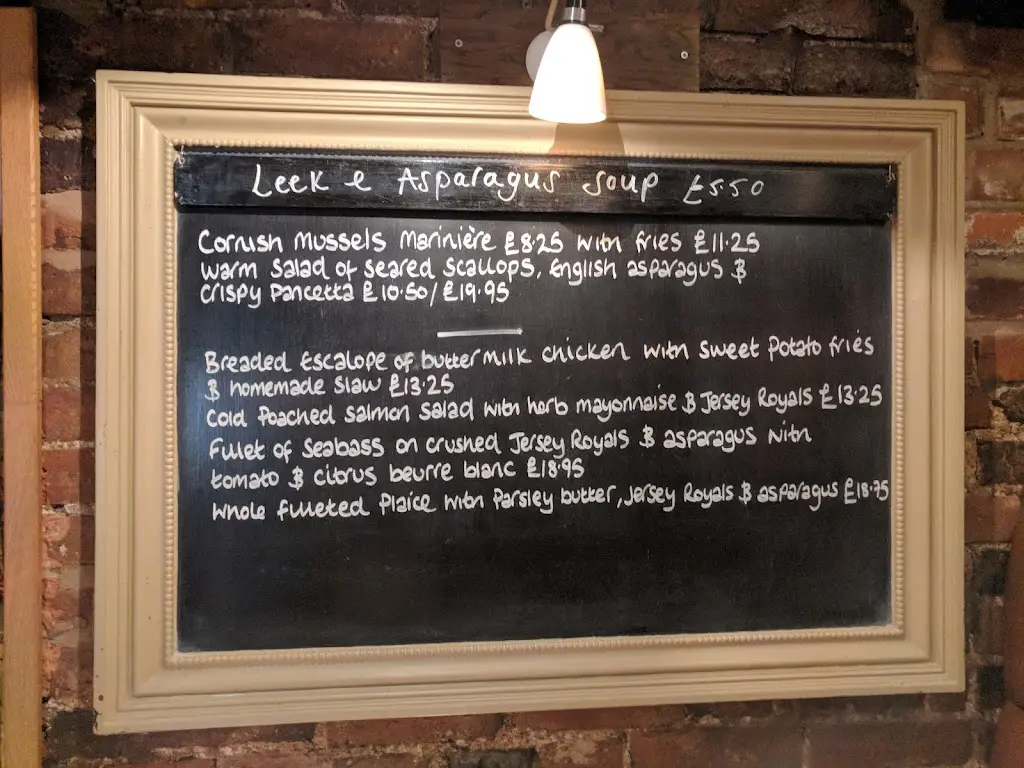 Leek & Asparagus Soup £5.50
Cornish Mussels Marinière £8.25 with fries £11.25
Warm Salad of Seared Scallops, English asparagus &
Crispy Pancetta £10.50/£19.95
Breaded Escalope of buttermilk chicken with sweet Potato fries
& homemade slaw £13.25
Cold Poached Salmon Salad with herb mayonnaise & Jersey Royals £13.25
Fillet of Seabass on crushed Jersey Royals & asparagus with
tomato & citrus beurre blanc £18.95
Whole filleted Plaice with Parsley butter, Jersey Royals & asparagus £18.75